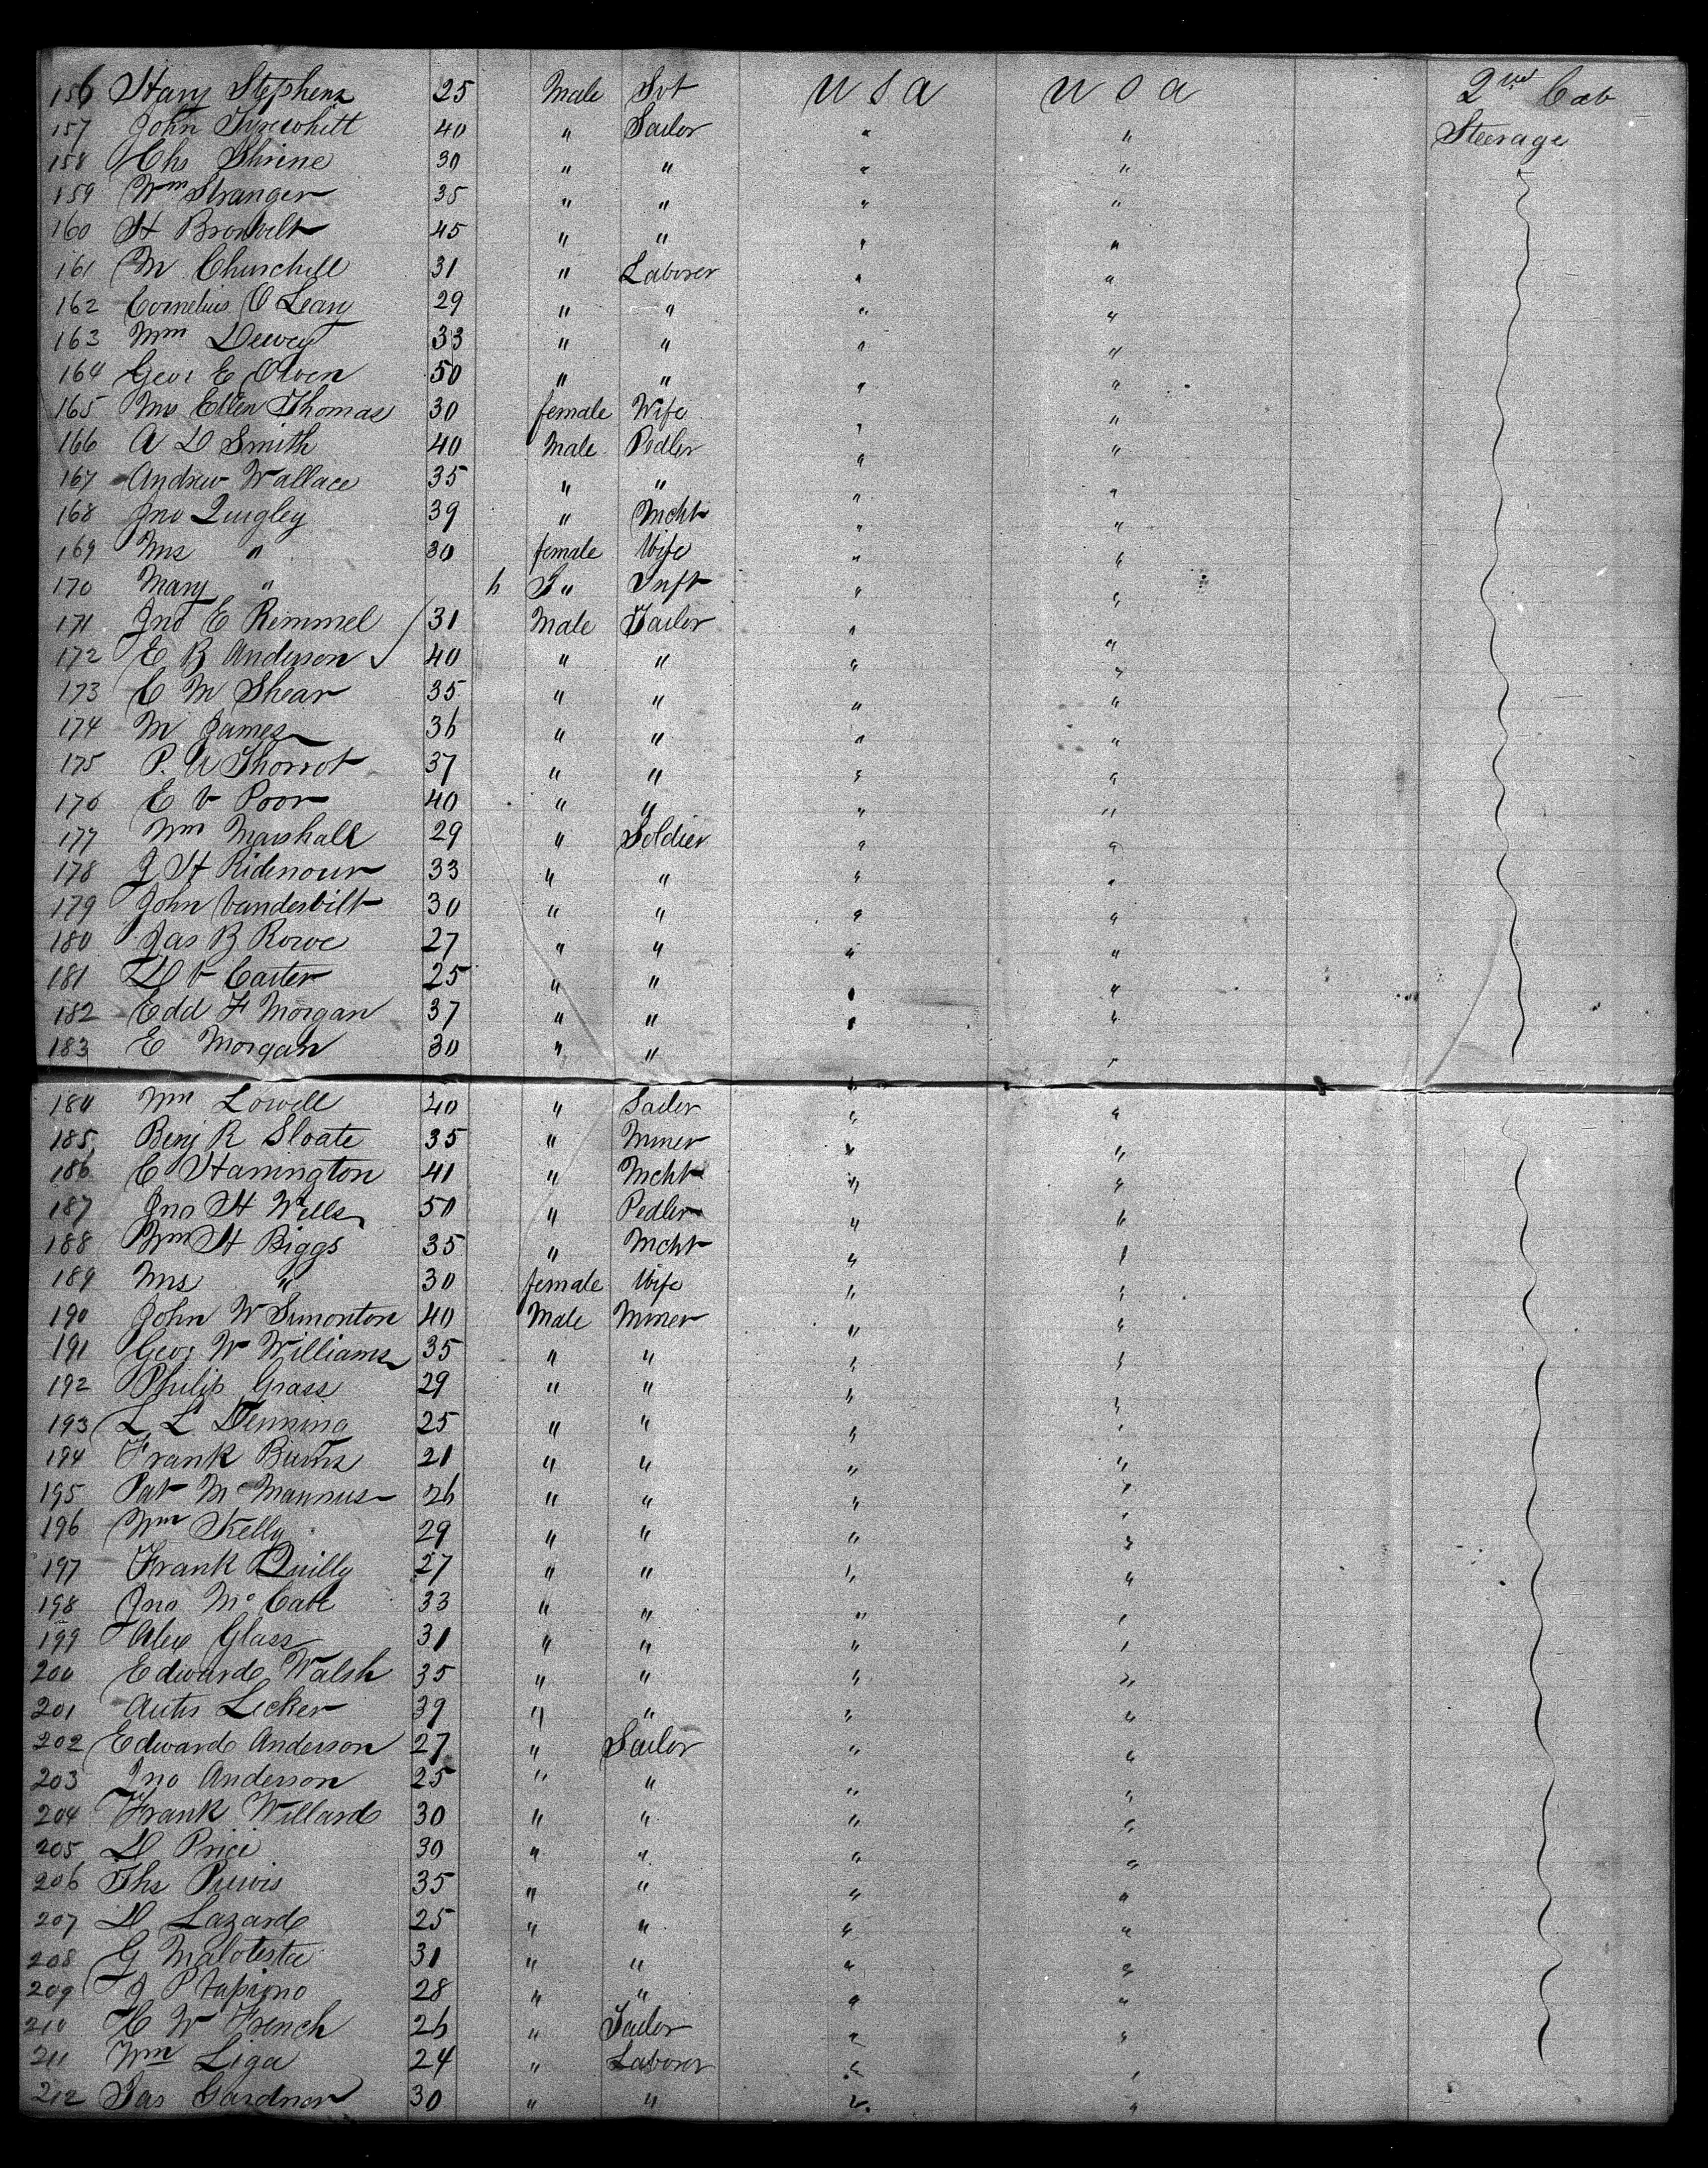 156 Hary Stephens 25 Male Svt U S A U S A 2nd Cab
157 John Tyrewhitt 40 " Sailor " " Steerage
158 Chs Shrine 30 " " " "
159 Wm Stranger 35 " " " "
160 H Bronvelt 45 " " " "
161 M Churchill 31 " Laborer " "
162 Cornelius O Leary 29 " " " "
163 Wm Dewey 33 " " " "
164 Geo: E Olven 50 " " " "
165 Mrs Ellen Thomas 30 female Wife " "
166 A D Smith 40 Male Pedler " "
167 Andrew Wallace 35 " " " "
168 Jno Quigley 39 " Mcht " "
169 Mrs " 30 female Wife " "
170 Mary " 6 F " Inft " "
171 Jno E Remmel 31 Male Tailor " "
172 E B Anderson 40 " " " "
173 C M Shear 35 " " " "
174 M James 36 " " " "
175 P. A Thorrot 37 " " " "
176 E V Poor 40 " " " "
177 Wm Marshall 29 " Soldier " "
178 J H Ridenour 33 " " " "
179 John Vanderbilt 30 " " " "
180 Jas B Rowe 27 " " " "
181 D V Carter 25 " " " "
182 Edd F Morgan 37 " " " "
183 E Morgan 30 " " " "
184 Wm Lowell 40 " Sailor " "
185 Benj R Sloate 35 " Miner " "
186 E Harrington 41 " Mcht " "
187 Jno H Wells 50 " Pedler " "
188 Wm H Biggs 35 " Mcht " "
189 Mrs " 30 female Wife " "
190 John W Simonton 40 Male Miner " "
191 Geo: W Williams 35 " " " "
192 Philip Grass 29 " " " "
193 L L Denning 25 " " " "
194 Frank Burns 21 " " " "
195 Pat McMannus 26 " " " "
196 Wm Kelly 29 " " " "
197 Frank Quilly 27 " " " "
198 Jno McCabe 33 " " " "
199 Alex Glass 31 " " " "
200 Edward Walsh 35 " " " "
201 Autis Lecker 39 " " " "
202 Edward Anderson 27 " Sailor " "
203 Jno Anderson 25 " " " "
204 Frank Willard 30 " " " "
205 D Price 30 " " " "
206 Ths Purvis 35 " " " "
207 D Lazard 25 " " " "
208 G Malotesta 31 " " " "
209 J P Tapiono 28 " " " "
210 H W French 26 " Tailor " "
211 Wm Liga 24 " Laborer " "
212 Jas Gardner 30 " " " "